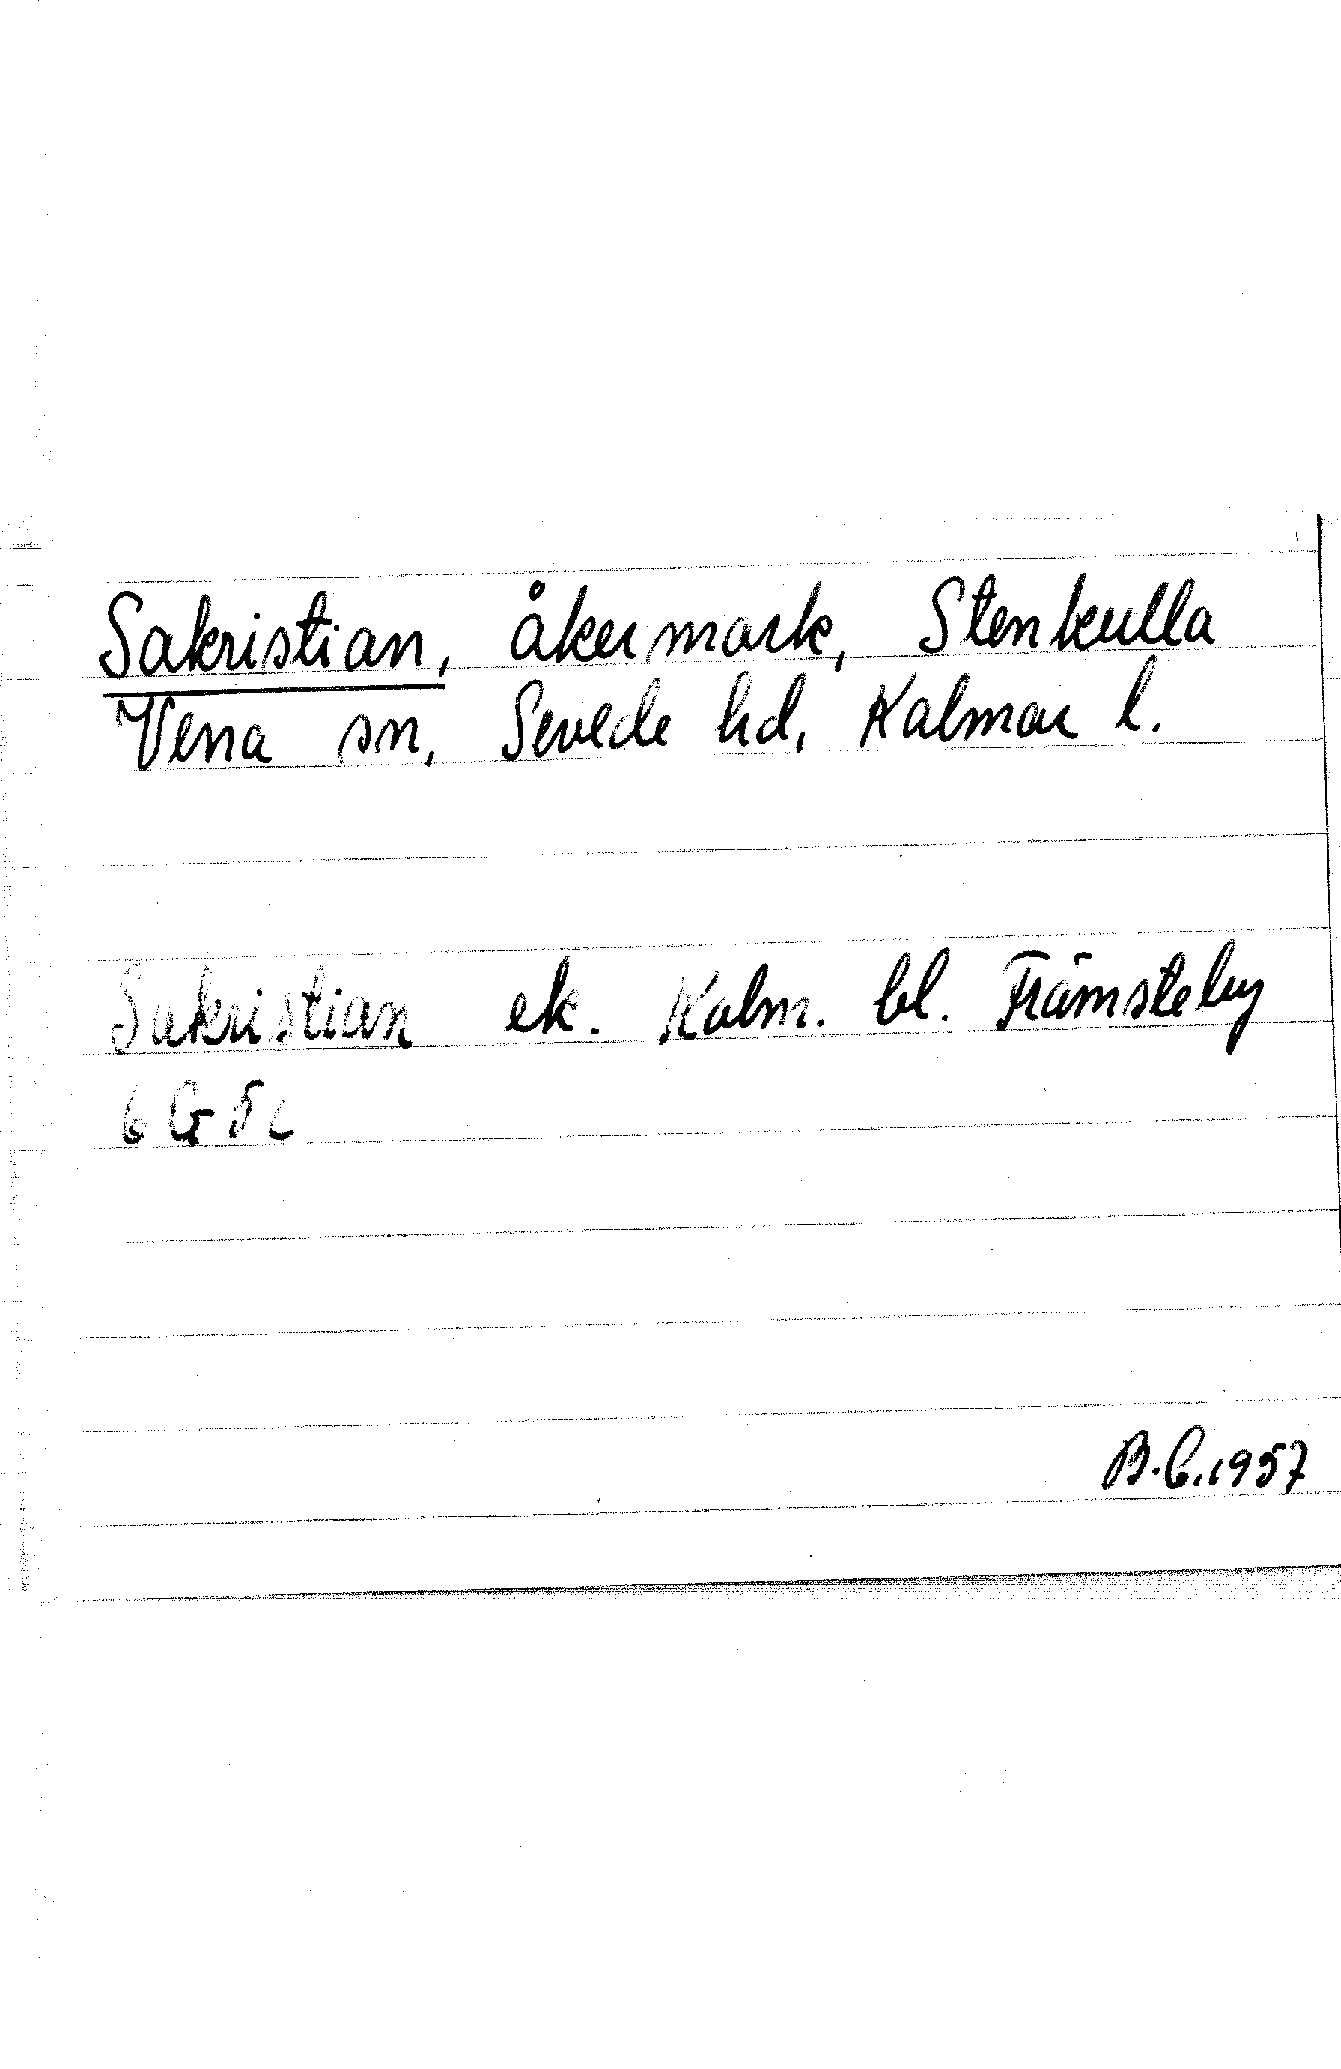 Sakristian, åkermark, Stenkulla
Vena sn, Sevede hd, Kalmar l.
Sakristian ek. Kalm. bl. Främsteby
6 G 5 c
B.C.1957